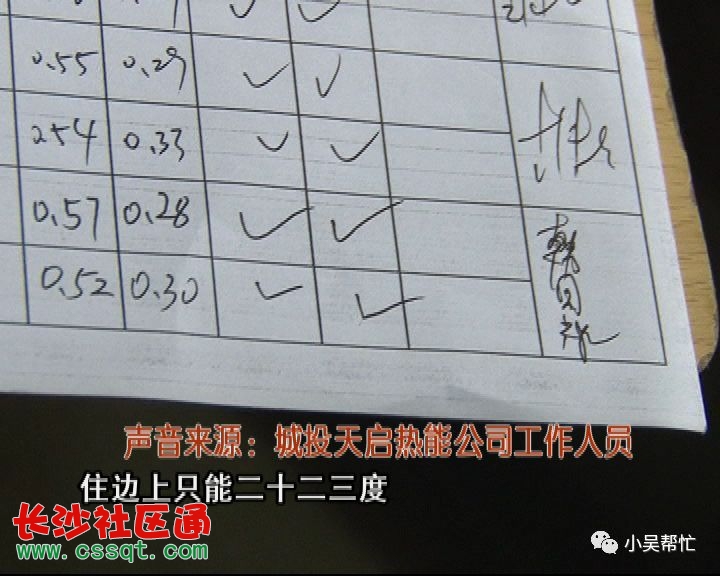 0.55 0.29 ✓ ✓
254 0.33 ✓ ✓
0.57 0.28 ✓ ✓
0.52 0.30 ✓ ✓
声音来源：城投天启热能公司工作人员
住边上只能二十二三度
长沙社区通
www.cssqt.com
小吴帮忙